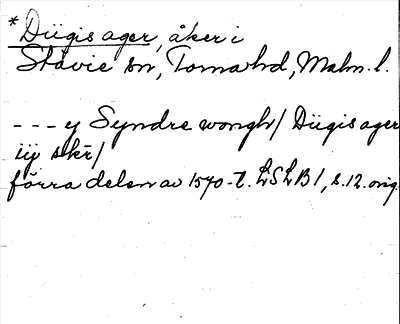 *Diigis ager, åker i
Stävie sn, Torna hd, Malm. l.
--- y Syndre wongh/ Diigis ager
iij skr/
förra delen av 1570-t. LSLB 1, s. 12. orig.